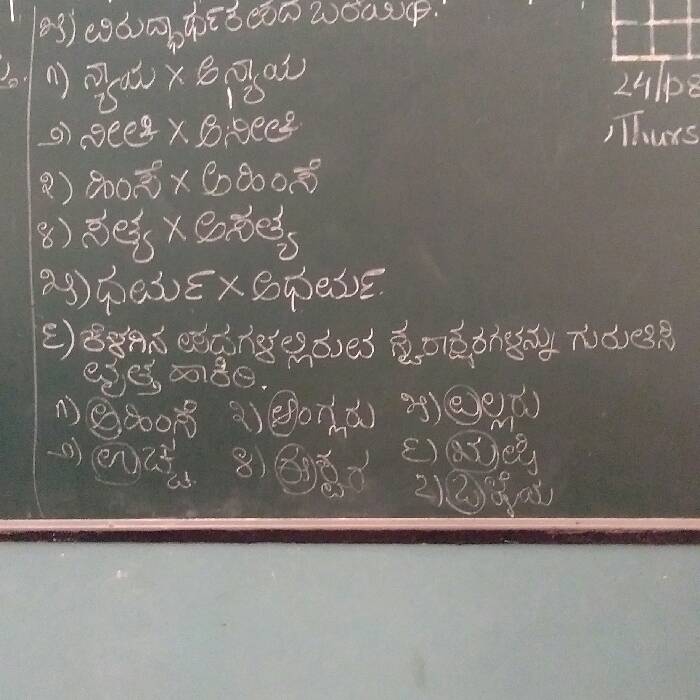 ೫) ವಿರುದ್ಧಾರ್ಥಕ ಪದ ಬರೆಯಿರಿ.
೧) ನ್ಯಾಯ X ಅನ್ಯಾಯ
೨) ನೀತಿ X ಅನೀತಿ
೩) ಹಿಂಸೆ X ಅಹಿಂಸೆ
೪) ಸತ್ಯ X ಅಸತ್ಯ
೫) ಧರ್ಮ X ಅಧರ್ಮ
೬) ಕೆಳಗಿನ ಪದಗಳಲ್ಲಿರುವ ಸ್ವರಾಕ್ಷರಗಳನ್ನು ಗುರುತಿಸಿ
ವೃತ್ತ ಹಾಕಿರಿ.
೧) ಅಹಿಂಸೆ ೩) ಆಂಗ್ಲರು ೫) ಎಲ್ಲರು
೨) ಉಚ್ಚ ೪) ಈಶ್ವರ ೬) ಋಷಿ
೭) ಐಕ್ಯ
24/08
Thurs